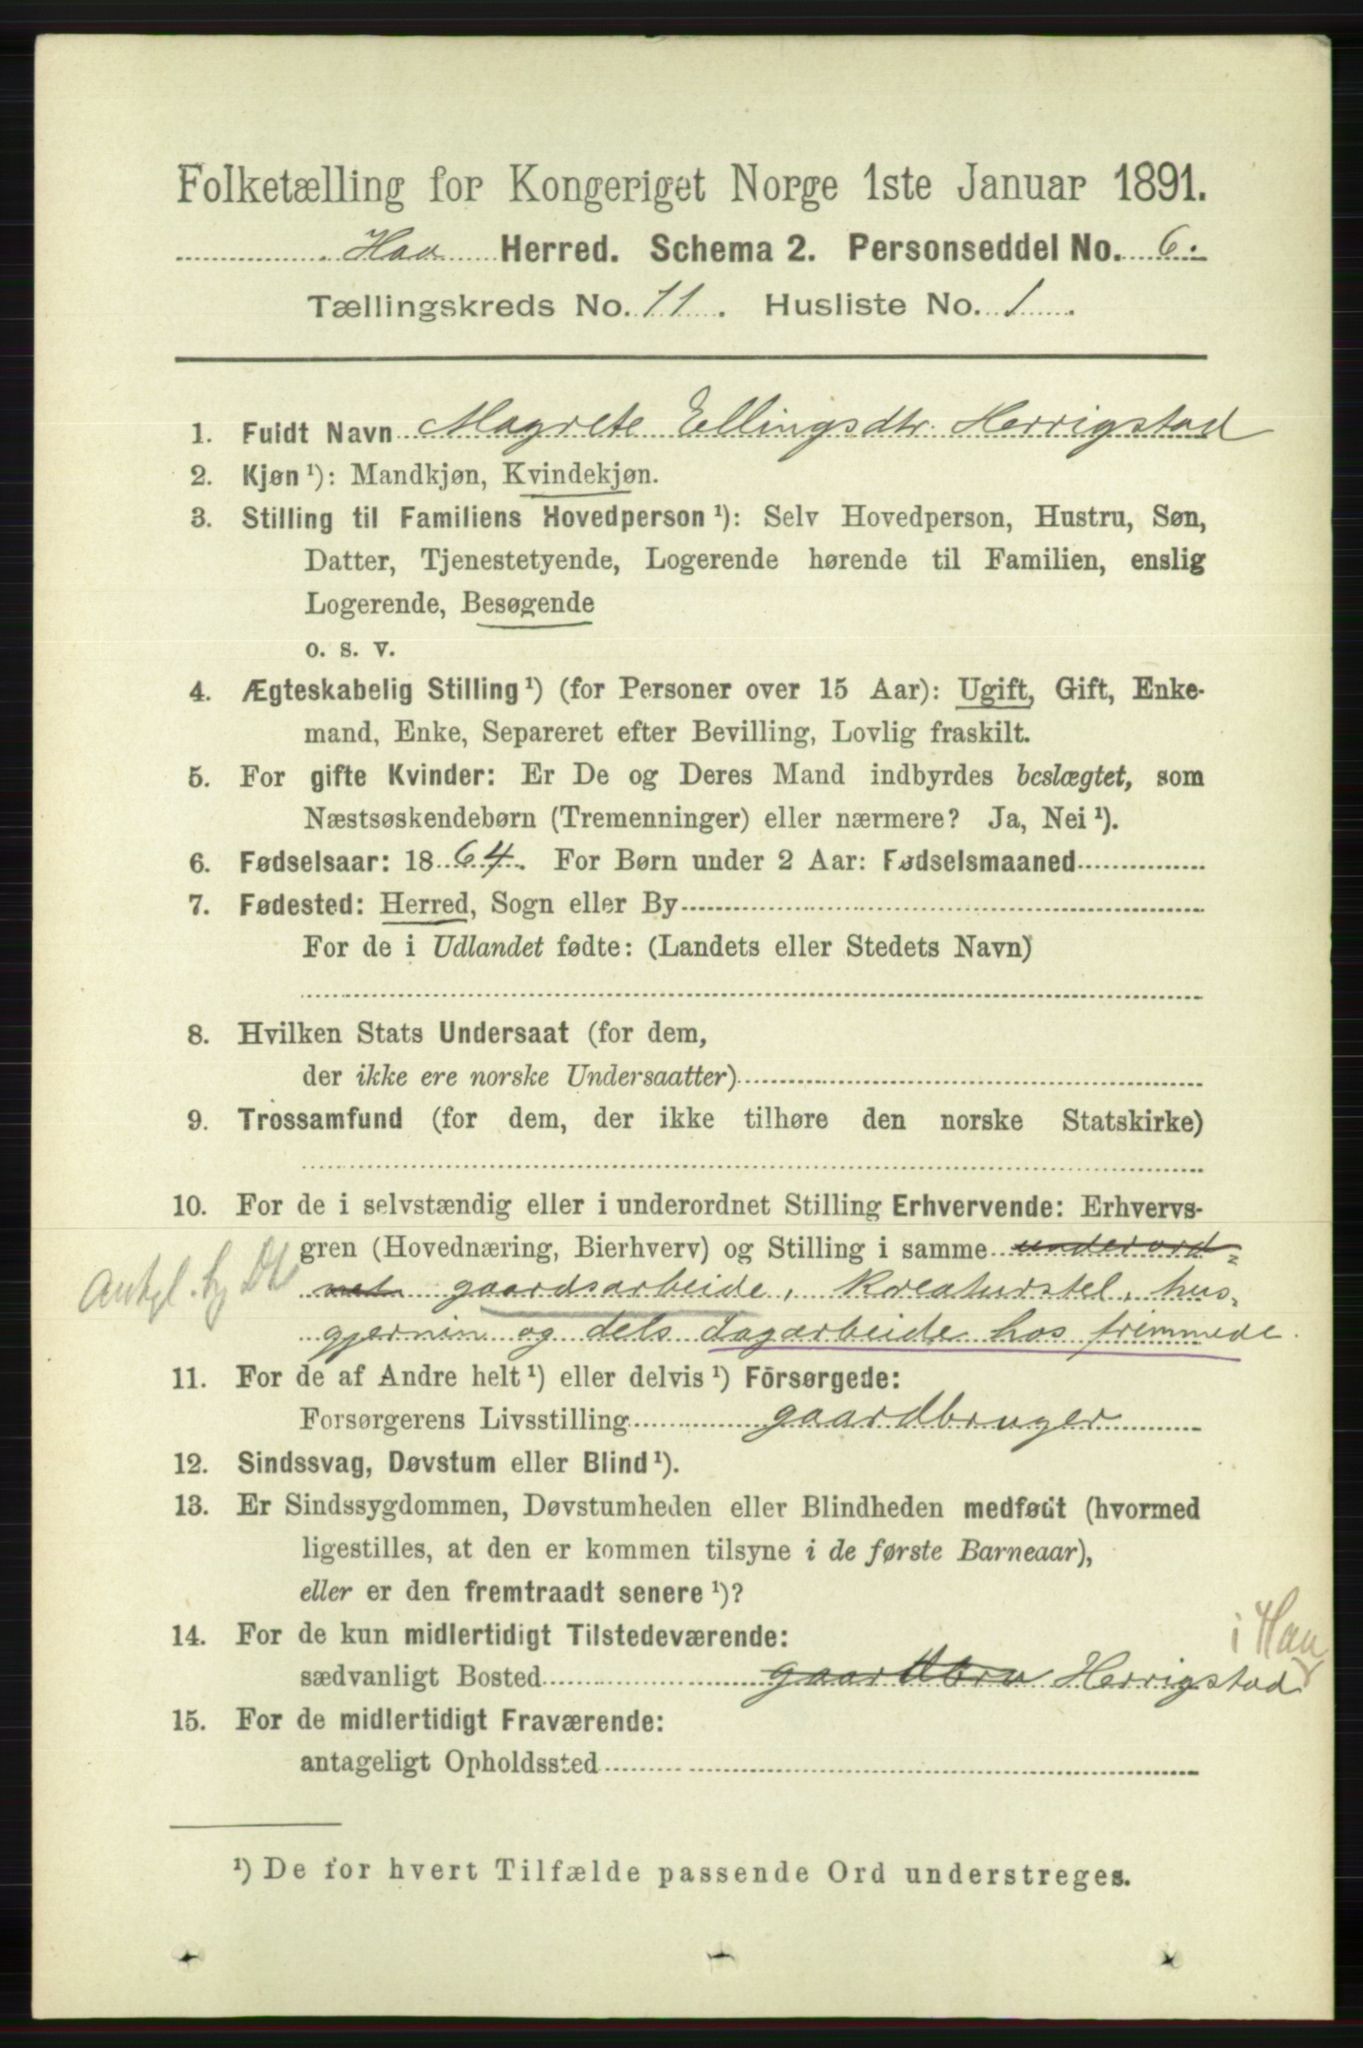 Folketælling for Kongeriget Norge 1ste Januar 1891.
Haa Herred. Schema 2. Personseddel No. 6.
Tællingskreds No. 11. Husliste No. 1.
1. Fuldt Navn Magrete Ellingsdtr. Herrigstad
2. Kjøn ¹): Mandkjøn, Kvindekjøn.
3. Stilling til Familiens Hovedperson ¹): Selv Hovedperson, Hustru, Søn,
Datter, Tjenestetyende, Logerende hørende til Familien, enslig
Logerende, Besøgende
o. s. v.
4. Ægteskabelig Stilling ¹) (for Personer over 15 Aar): Ugift, Gift, Enke-
mand, Enke, Separeret efter Bevilling, Lovlig fraskilt.
5. For gifte Kvinder: Er De og Deres Mand indbyrdes beslægtet, som
Næstsøskendebørn (Tremenninger) eller nærmere? Ja, Nei ¹).
6. Fødselsaar: 1864. For Børn under 2 Aar: Fødselsmaaned
7. Fødested: Herred, Sogn eller By
For de i Udlandet fødte: (Landets eller Stedets Navn)
8. Hvilken Stats Undersaat (for dem,
der ikke ere norske Undersaatter)
9. Trossamfund (for dem, der ikke tilhøre den norske Statskirke)
10. For de i selvstændig eller i underordnet Stilling Erhvervende: Erhvervs-
gren (Hovednæring, Bierhverv) og Stilling i samme underord-
net gaardsarbeide, kreaturstel, hus-
gjernin og dels dagarbeide hos frimmede.
11. For de af Andre helt ¹) eller delvis ¹) Forsørgede:
Forsørgerens Livsstilling gaardbruger
12. Sindssvag, Døvstum eller Blind ¹).
13. Er Sindssygdommen, Døvstumheden eller Blindheden medfødt (hvormed
ligestilles, at den er kommen tilsyne i de første Barneaar),
eller er den fremtraadt senere ¹)?
14. For de kun midlertidigt Tilstedeværende:
i Haa
sædvanligt Bosted gaardbru Herrigstad
15. For de midlertidigt Fraværende:
antageligt Opholdssted
¹) De for hvert Tilfælde passende Ord understreges.